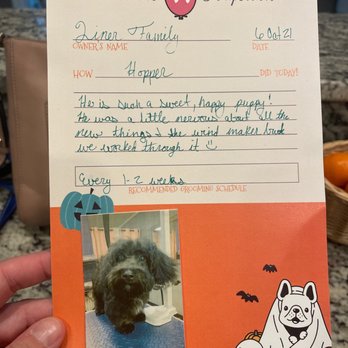 Ziner Family 6 Oct 21
OWNER'S NAME DATE
HOW Hopper DID TODAY!
He is such a sweet, happy puppy!
He was a little nervous about all the
new things & the wind maker but
we worked through it
Every 1-2 weeks
RECOMMENDED GROOMING SCHEDULE